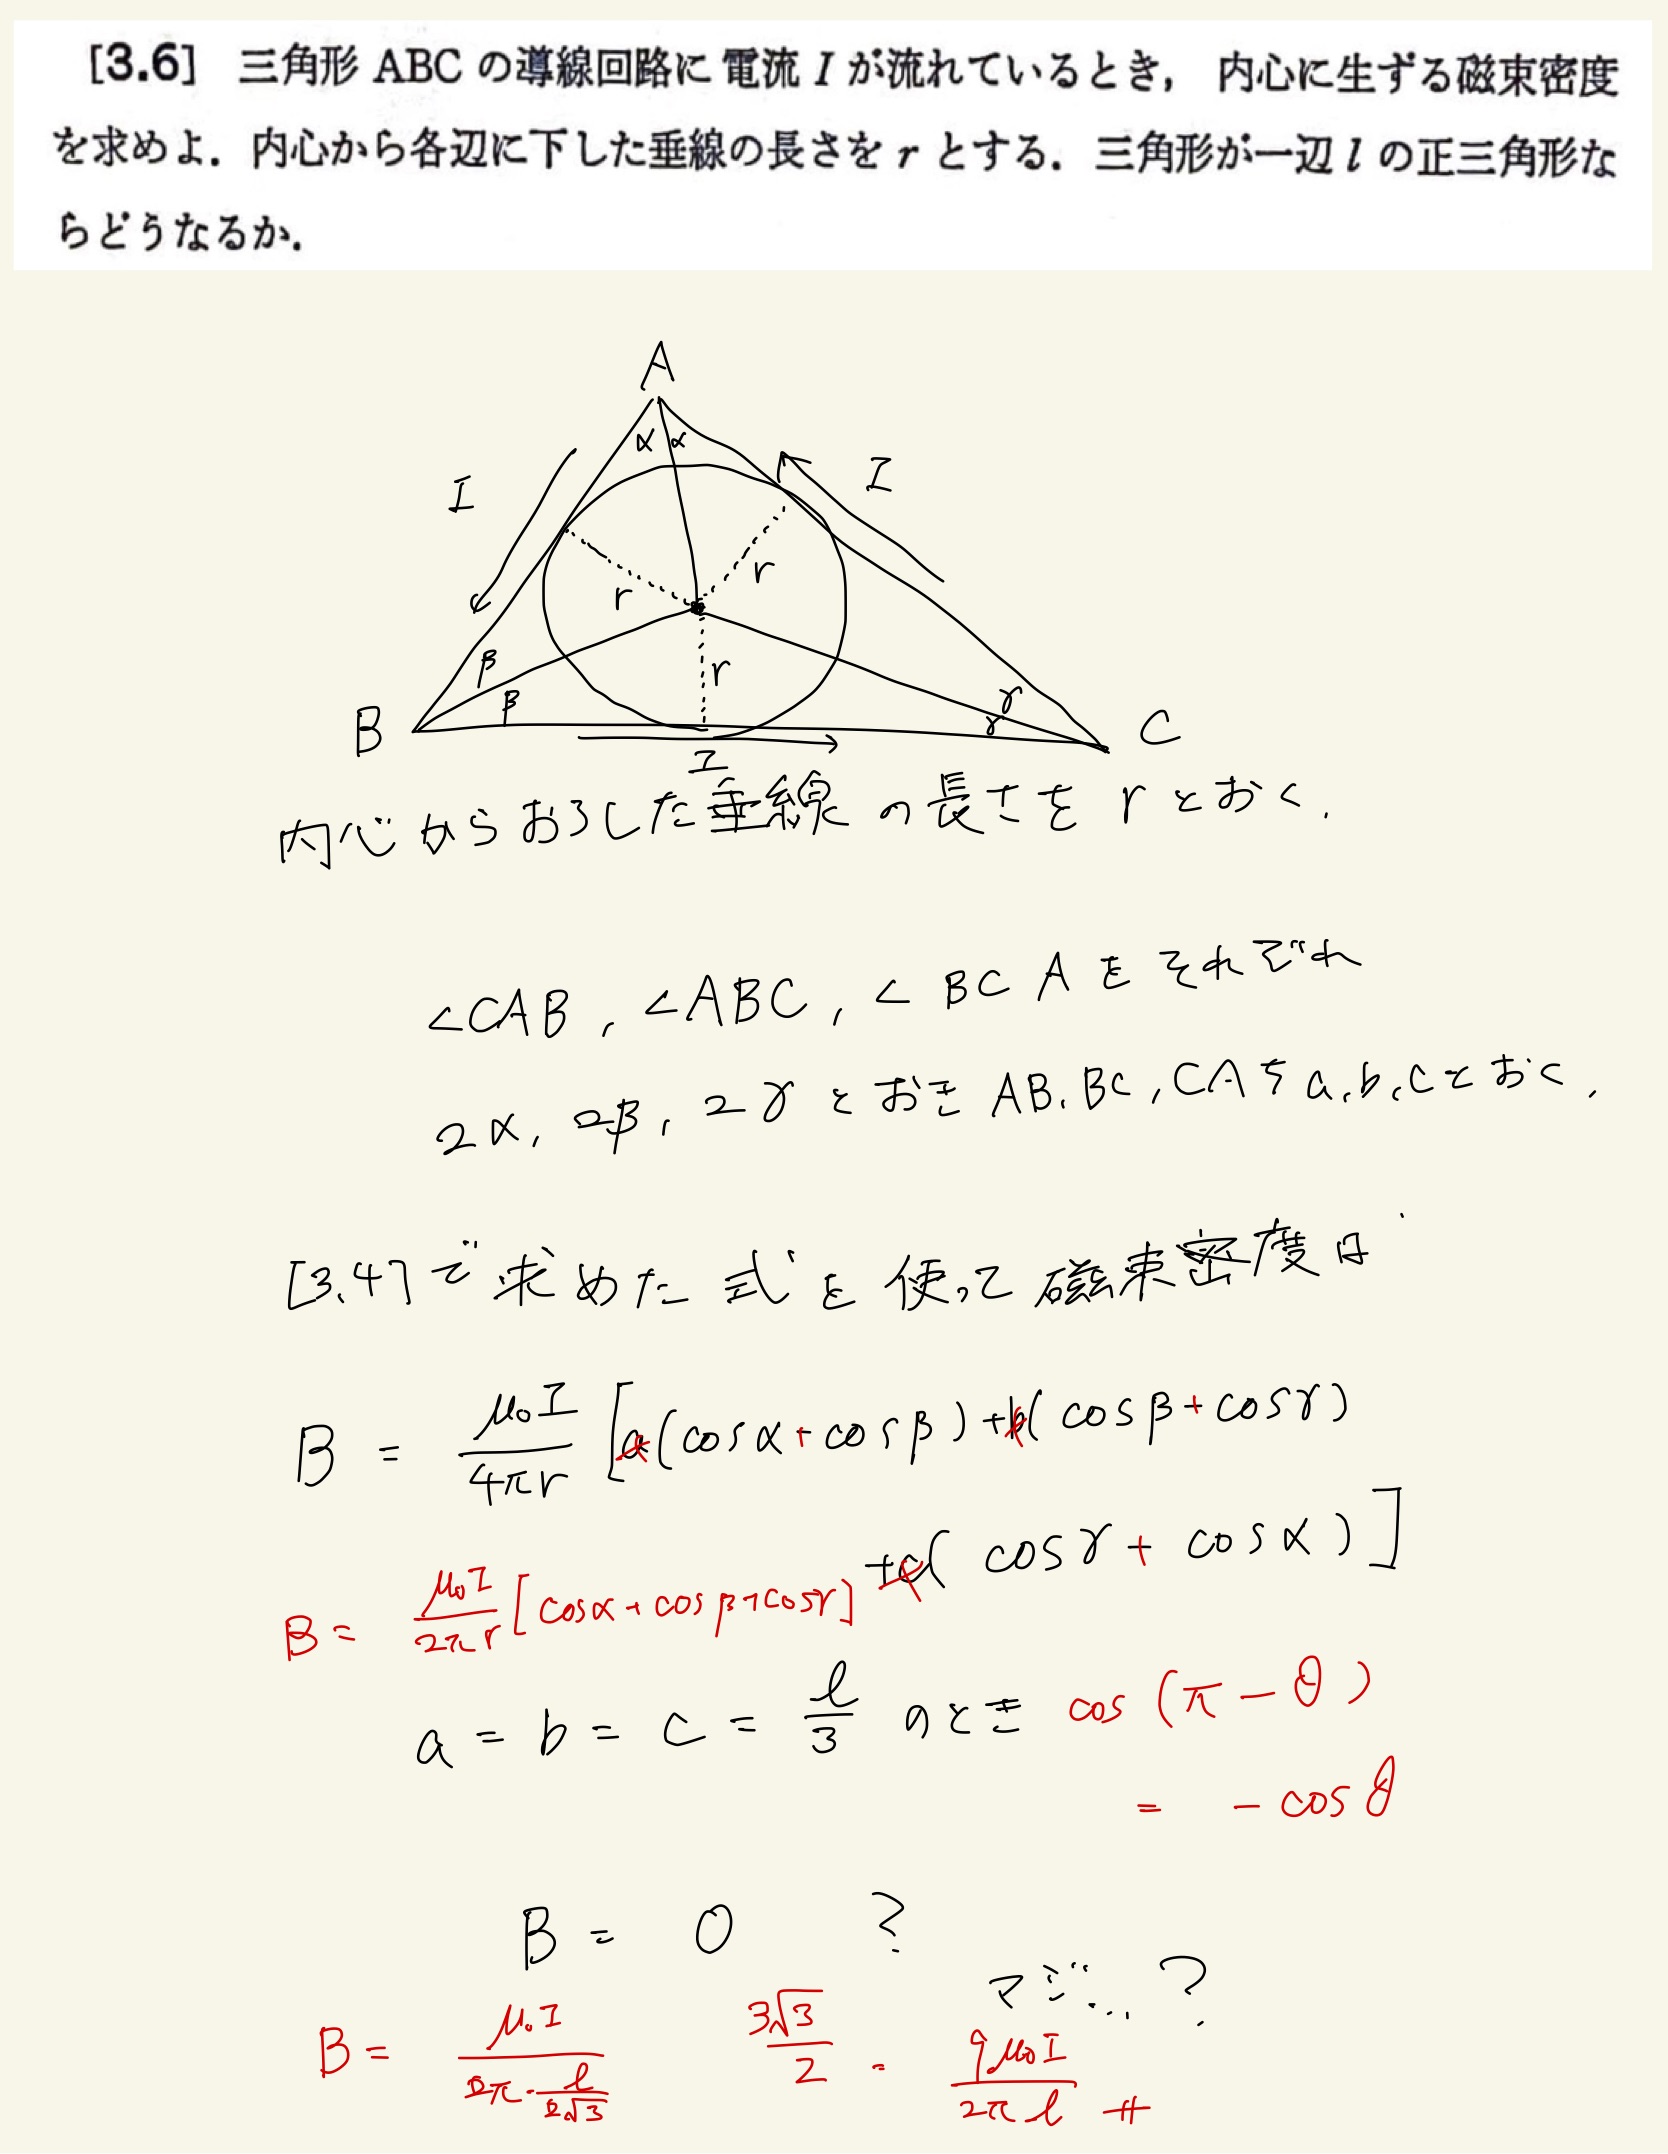 [3.6] 三角形 ABC の導線回路に 電流 I が流れているとき, 内心に生ずる磁束密度
を求めよ. 内心から各辺に下した垂線の長さを r とする. 三角形が一辺 l の正三角形な
らどうなるか.
A
α α
I
I
r
r
β
r
β
γ
γ
B
C
I
内心からおろした垂線 の長さを r とおく.
∠CAB, ∠ABC, ∠BCA を それぞれ
2α, 2β, 2γ とおき AB, BC, CA を a, b, c とおく.
[3.4] で 求めた 式を 使って 磁束密度は
B = μ₀I / 4πr [a(cosα + cosβ) + b(cosβ + cosγ)
+ c(cosγ + cosα)]
B = μ₀I / 2πr [cosα + cosβ + cosγ]
a = b = c = l/3 のとき cos(π - θ)
= - cosθ
B = 0 ?
マジ...?
B = μ₀I / 2π・l/2√3 3√3/2 = 9μ₀I / 2πl #